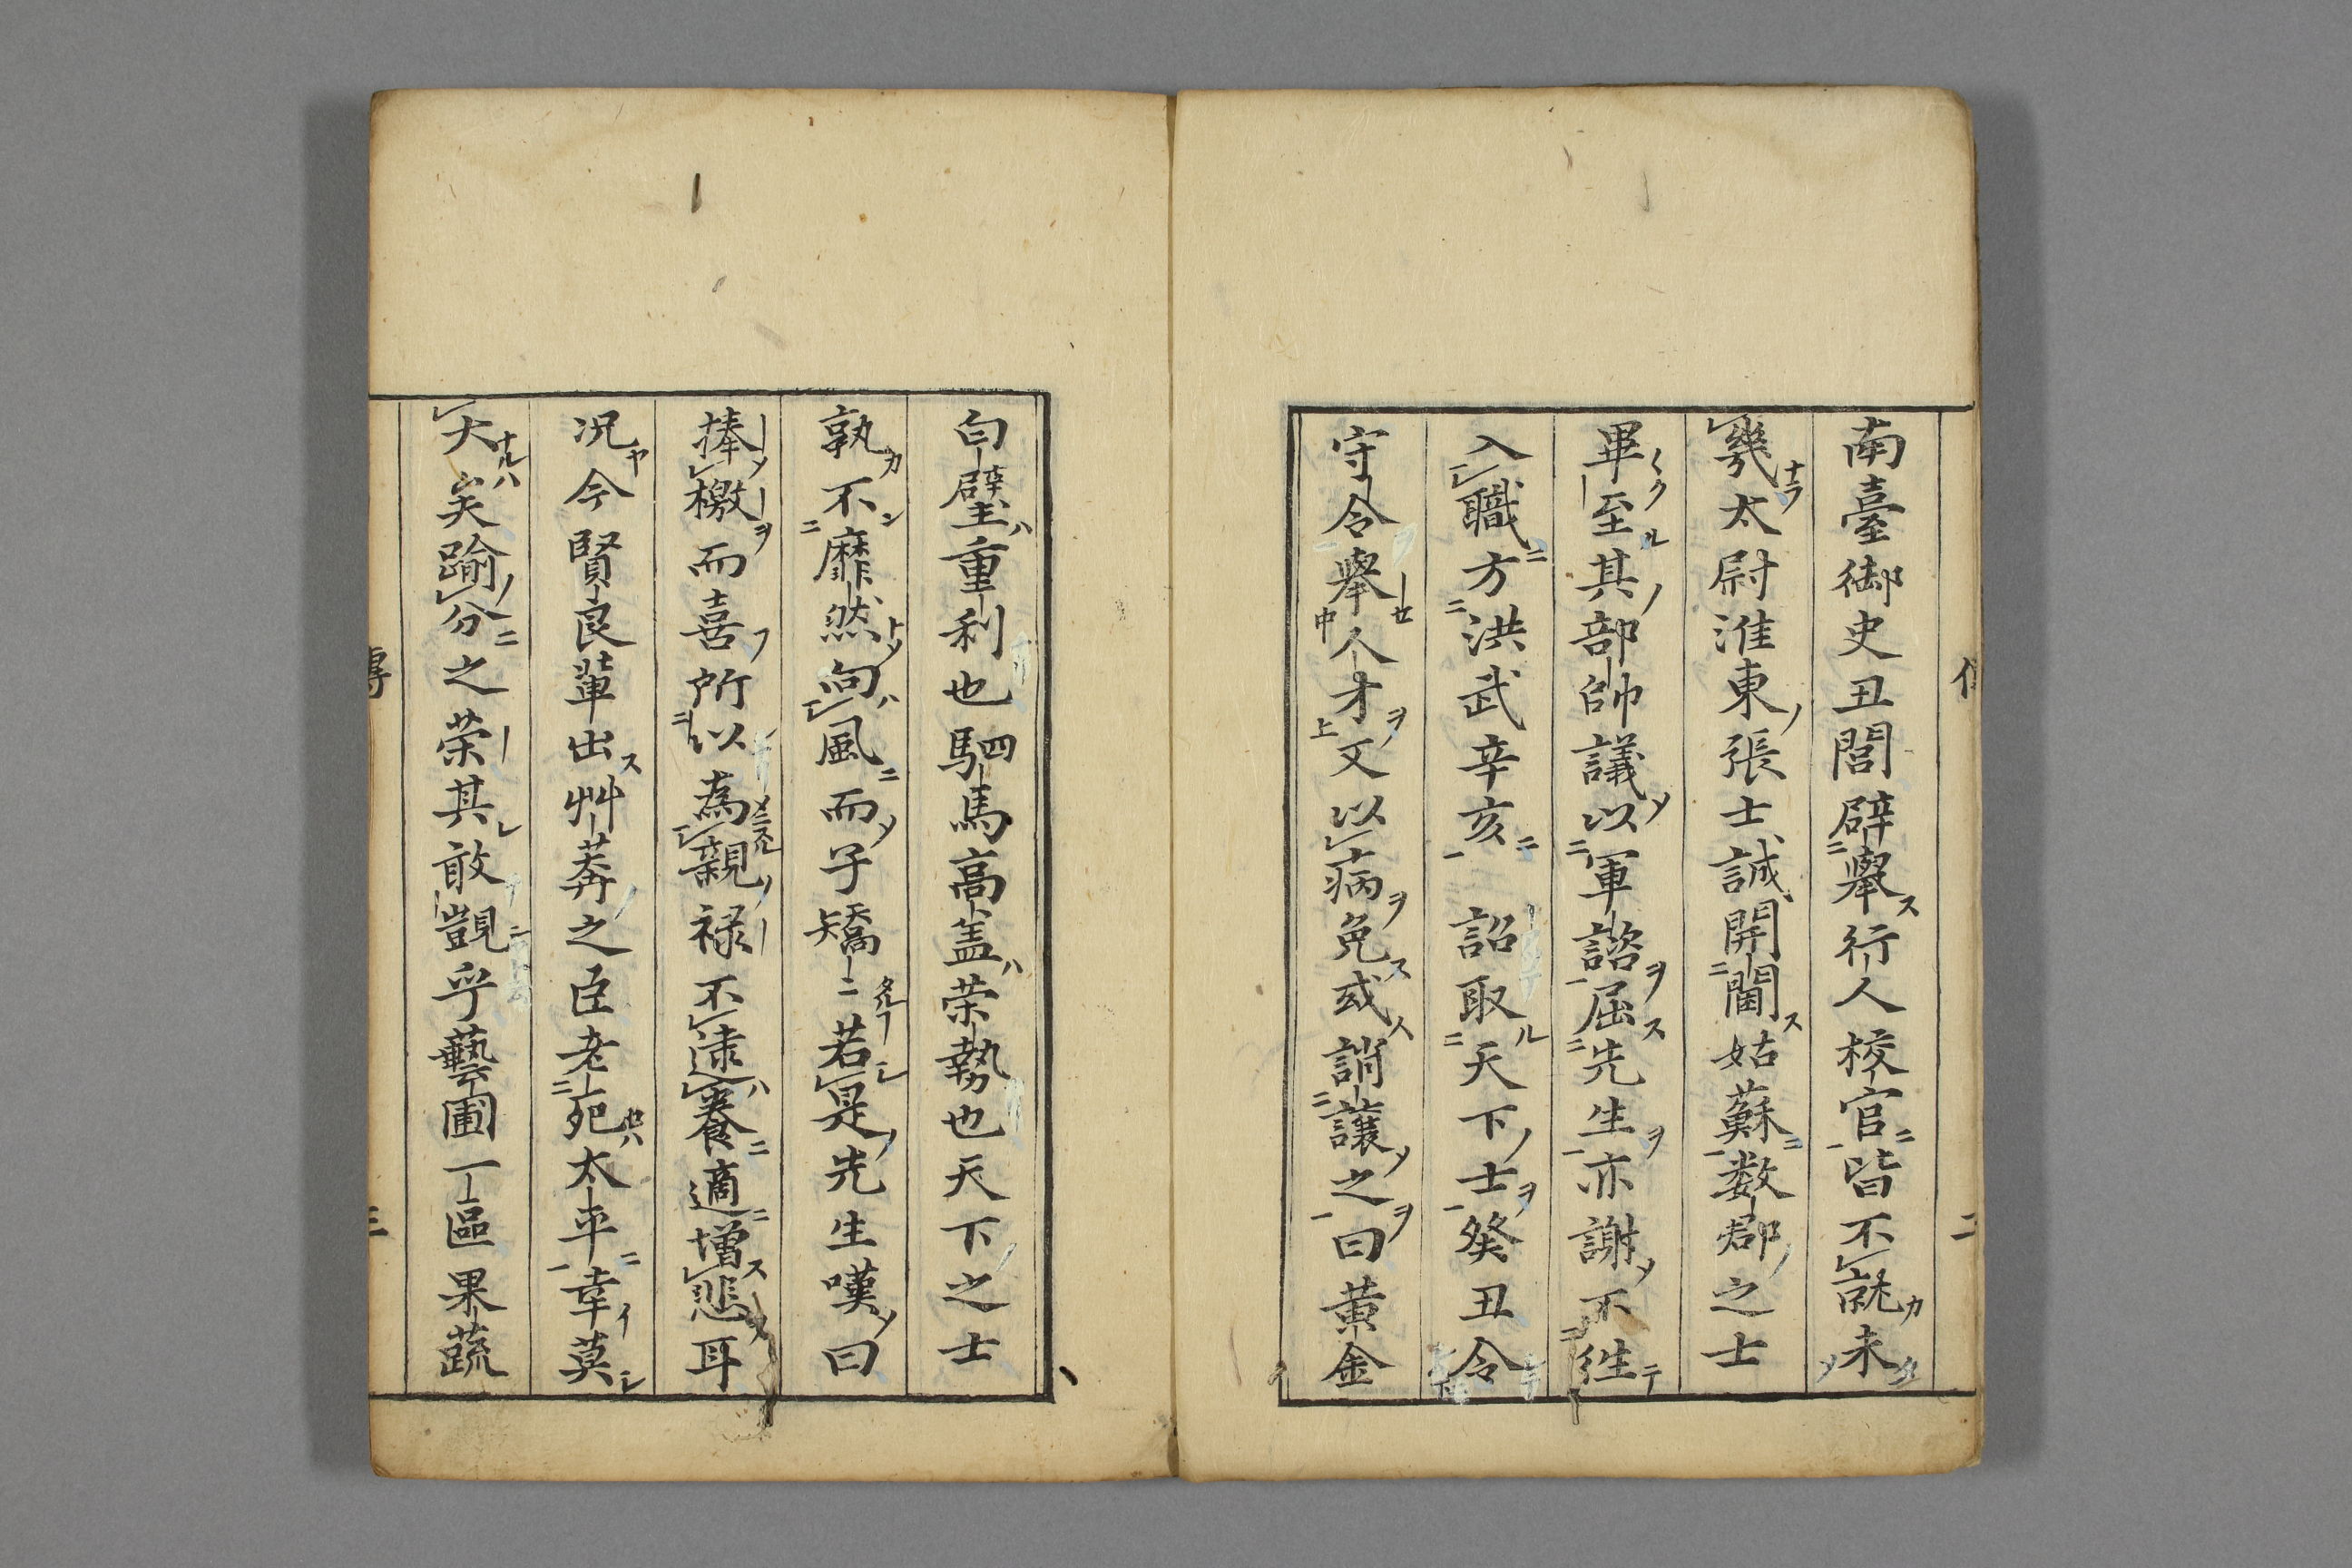 南臺御史丑閭辟舉行人校官皆不就未
幾太尉淮東張士誠開閫姑蘇数郡之士
畢至其部帥議以軍諮屈先生亦謝不往
入職方洪武辛亥詔取天下士癸丑令
守令舉人才又以病免或誚讓之曰黄金
白璧重利也駟馬高盖荣勢也天下之士
孰不靡然向風而子矯〻若是先生嘆曰
捧檄而喜所以為親禄不逮養適增悲耳
况今賢良輩出艸莽之臣老死太平幸莫
大矣踰分之荣其敢覬乎藝圃一區果蔬
傳
三